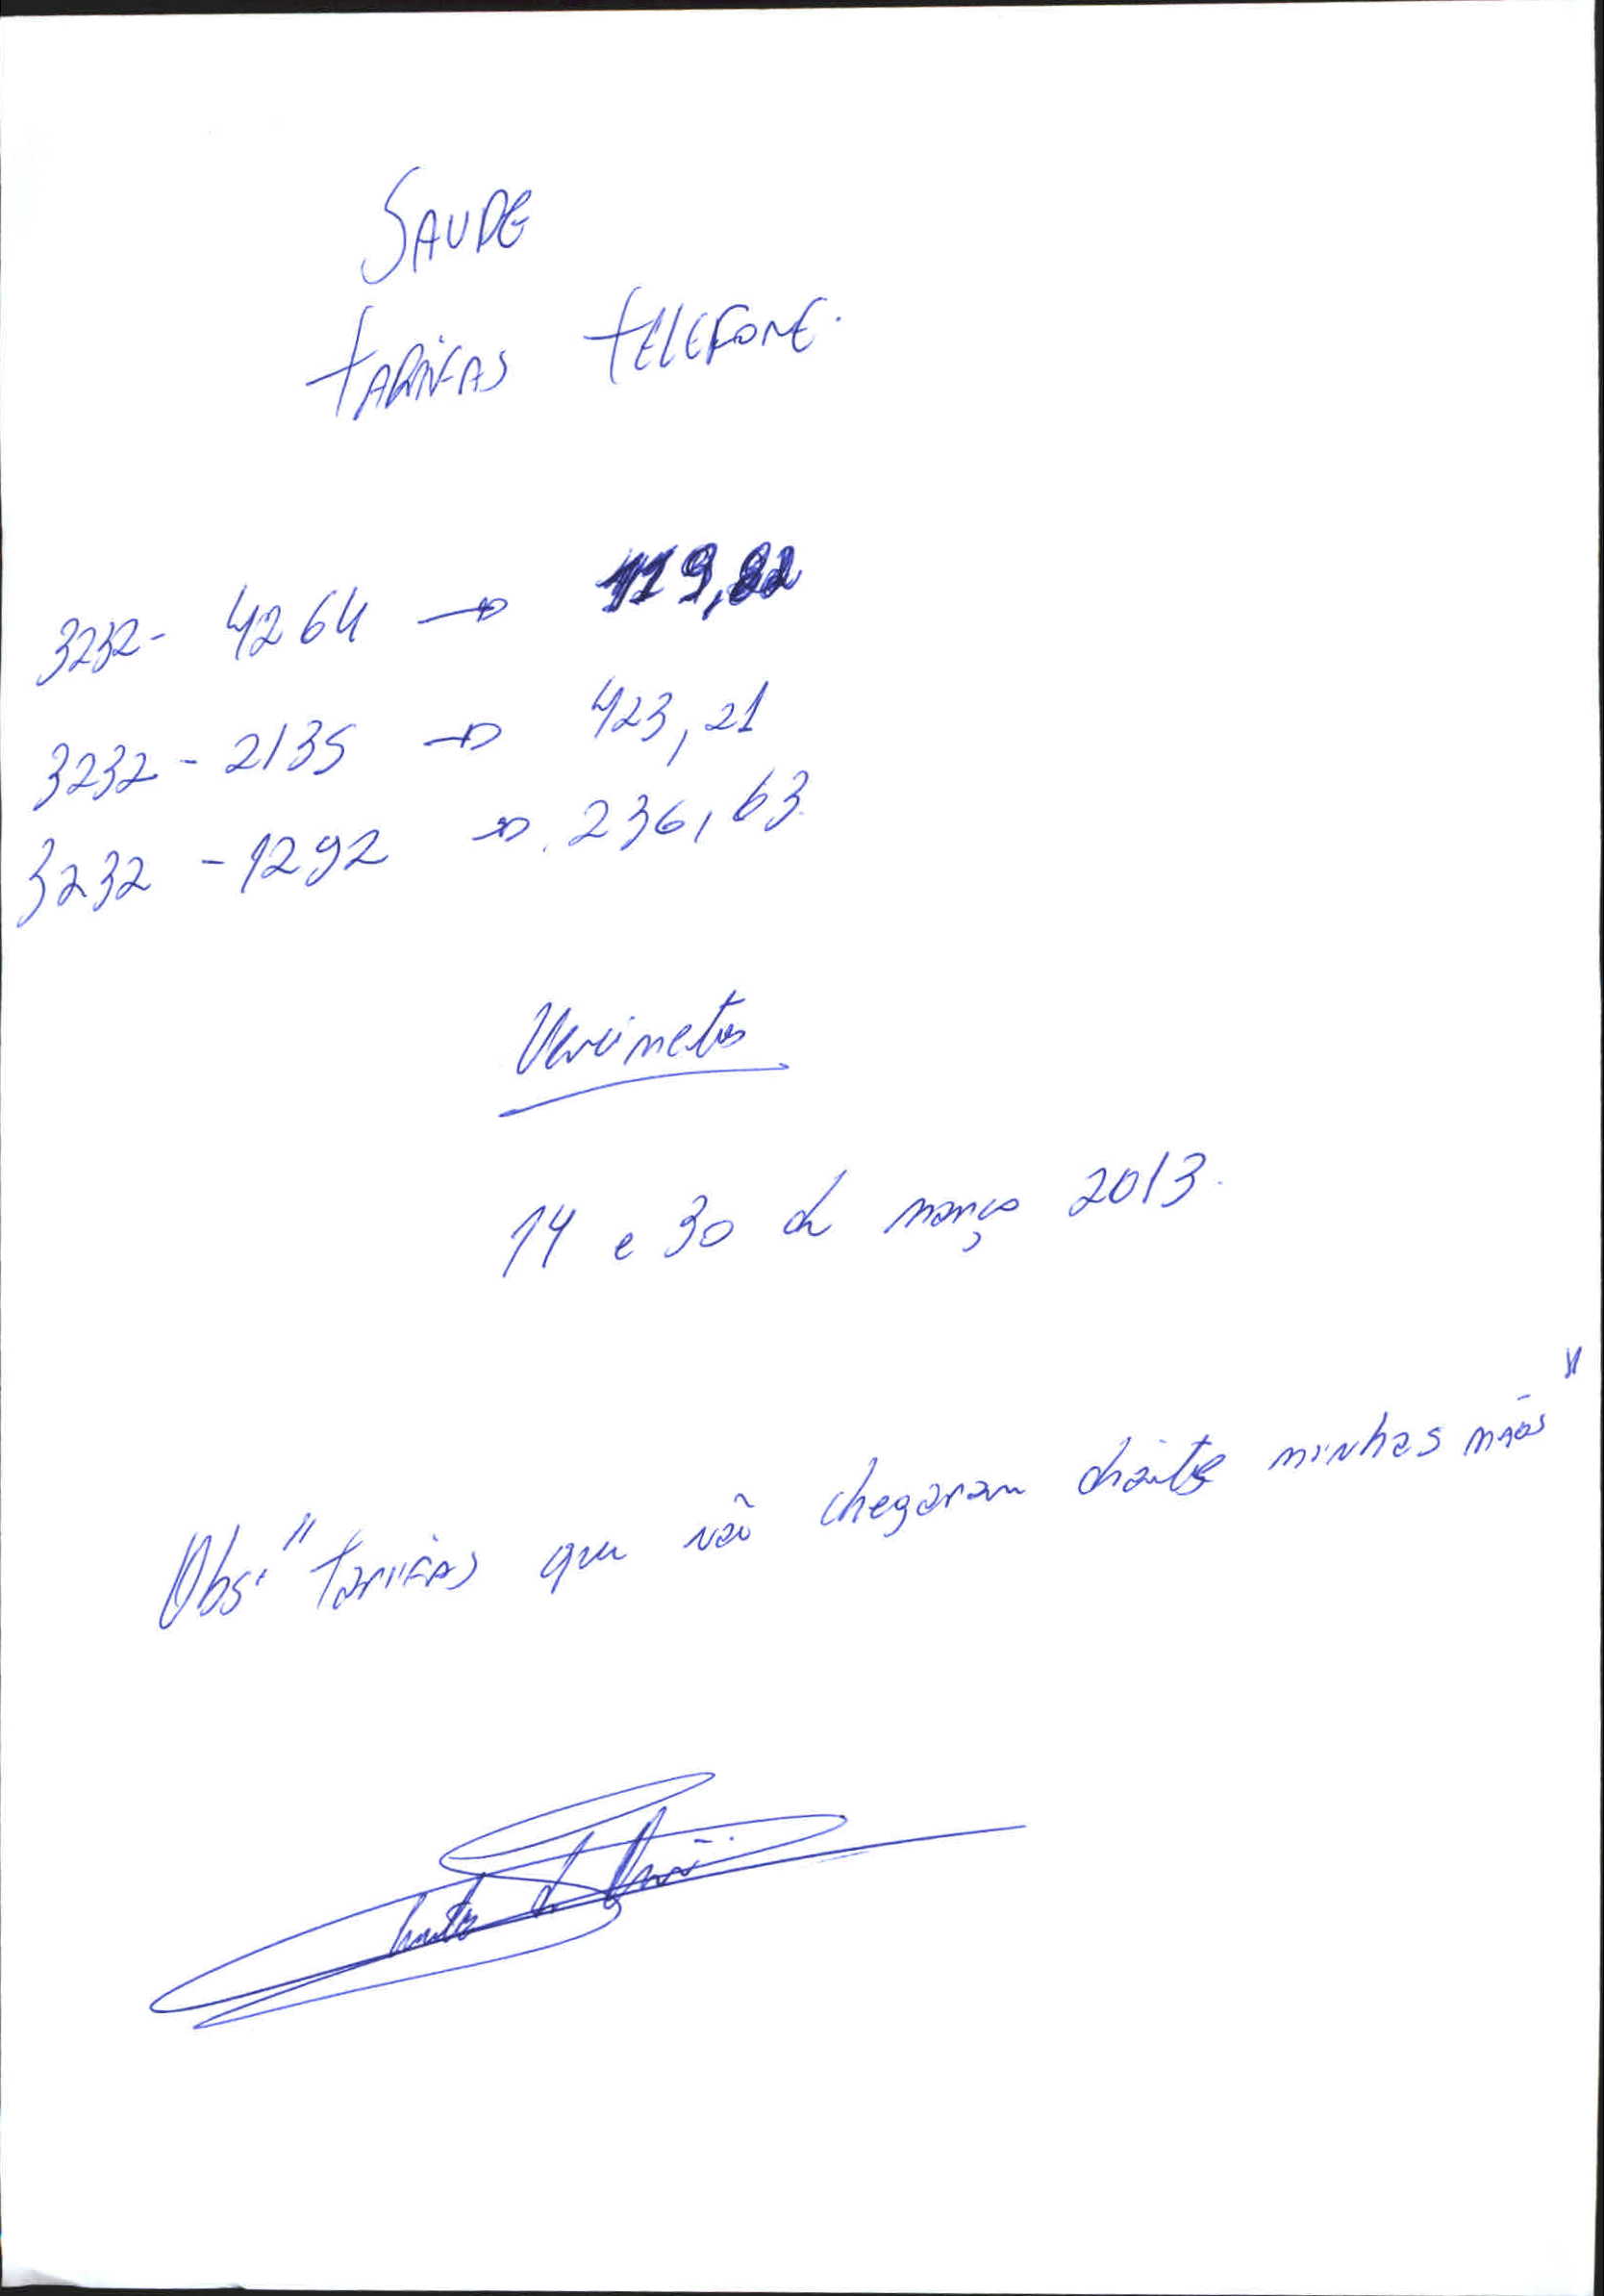 SAUDE
TARIFAS TELEFONE.
3232- 4264 → 119,82
3232 - 2135 → 423,21
3232 - 1292 → 236,63
Vencimetos
14 e 30 de março 2013.
Obs: "Tarifas que não chegaram minhas mãos"